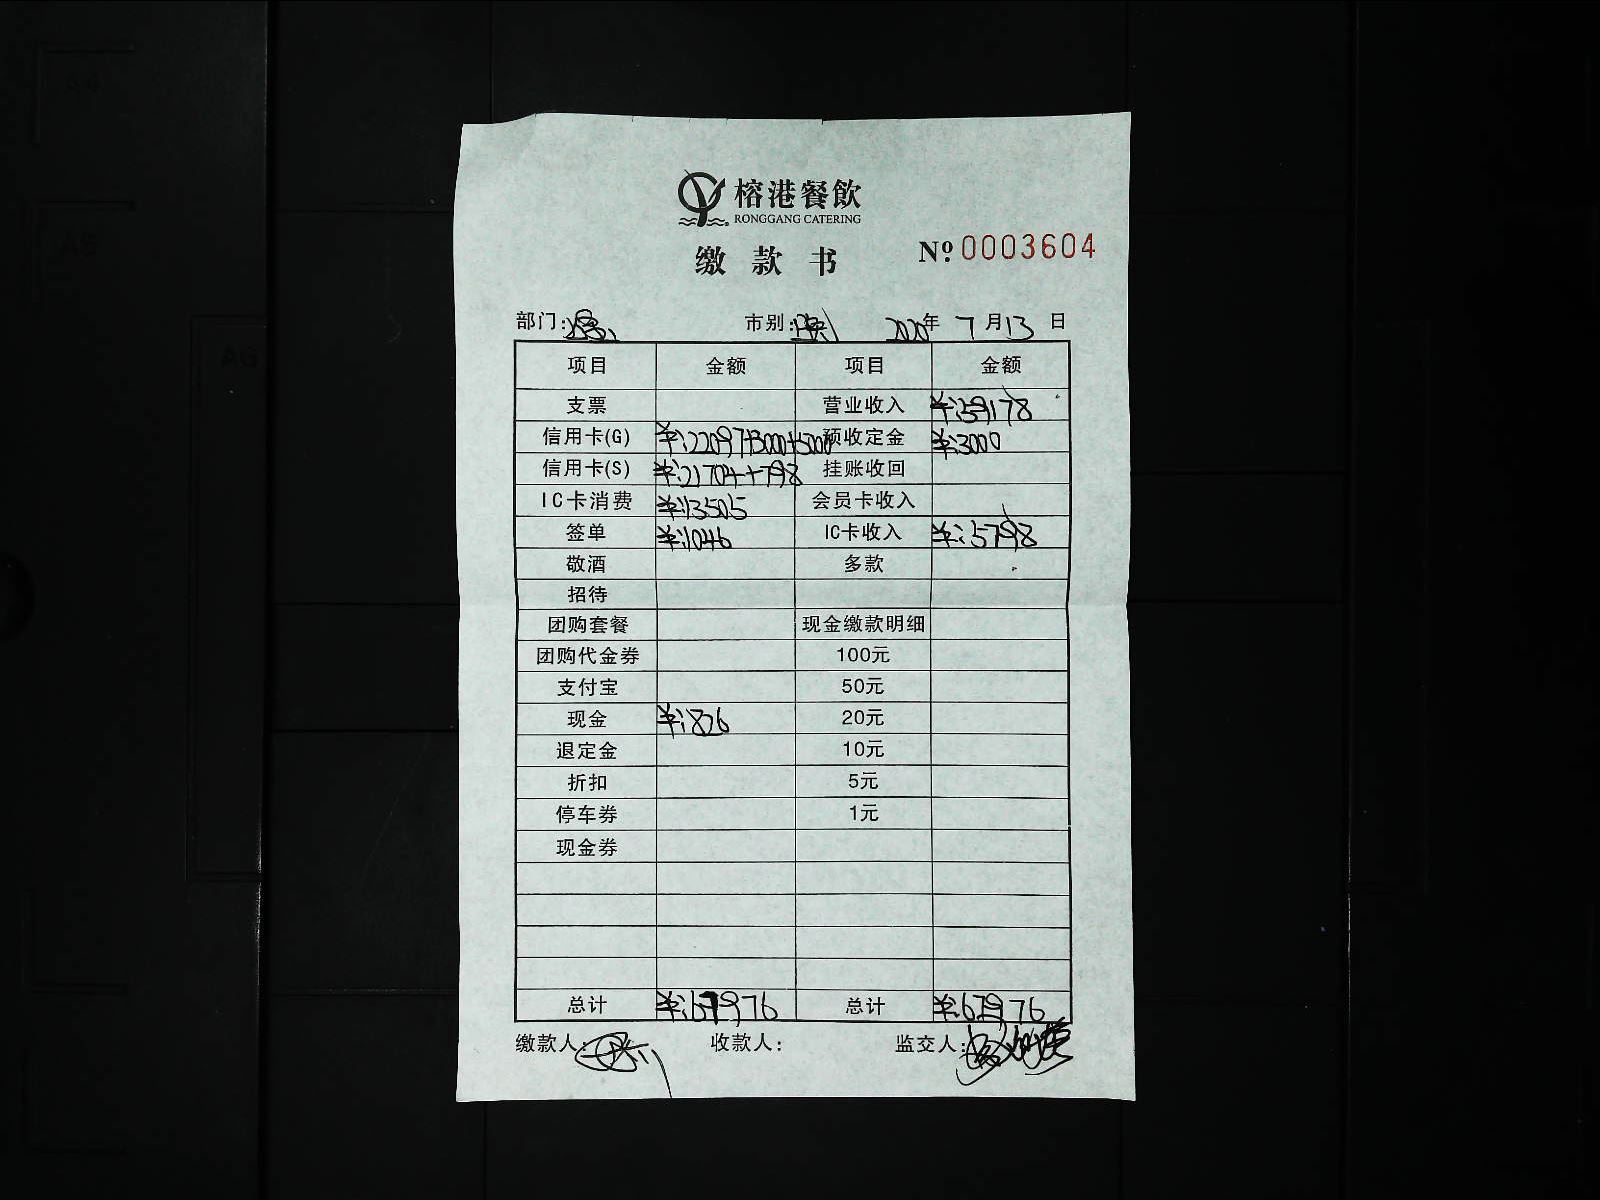 A5
A6
榕港餐飲
RONGGANG CATERING
缴款书 Nº 0003604
部门: 市别: 2020年 7月13日
项目 金额 项目 金额
支票 营业收入 ¥:59178
信用卡(G) ¥:22097+3000+5000 预收定金 ¥:3000
信用卡(S) ¥:21704+798 挂账收回
IC卡消费 ¥:13505 会员卡收入
签单 ¥:1046 IC卡收入 ¥:5798
敬酒 多款
招待
团购套餐 现金缴款明细
团购代金券 100元
支付宝 50元
现金 ¥:826 20元
退定金 10元
折扣 5元
停车券 1元
现金券
总计 ¥:67976 总计 ¥:67976
缴款人: 收款人: 监交人: